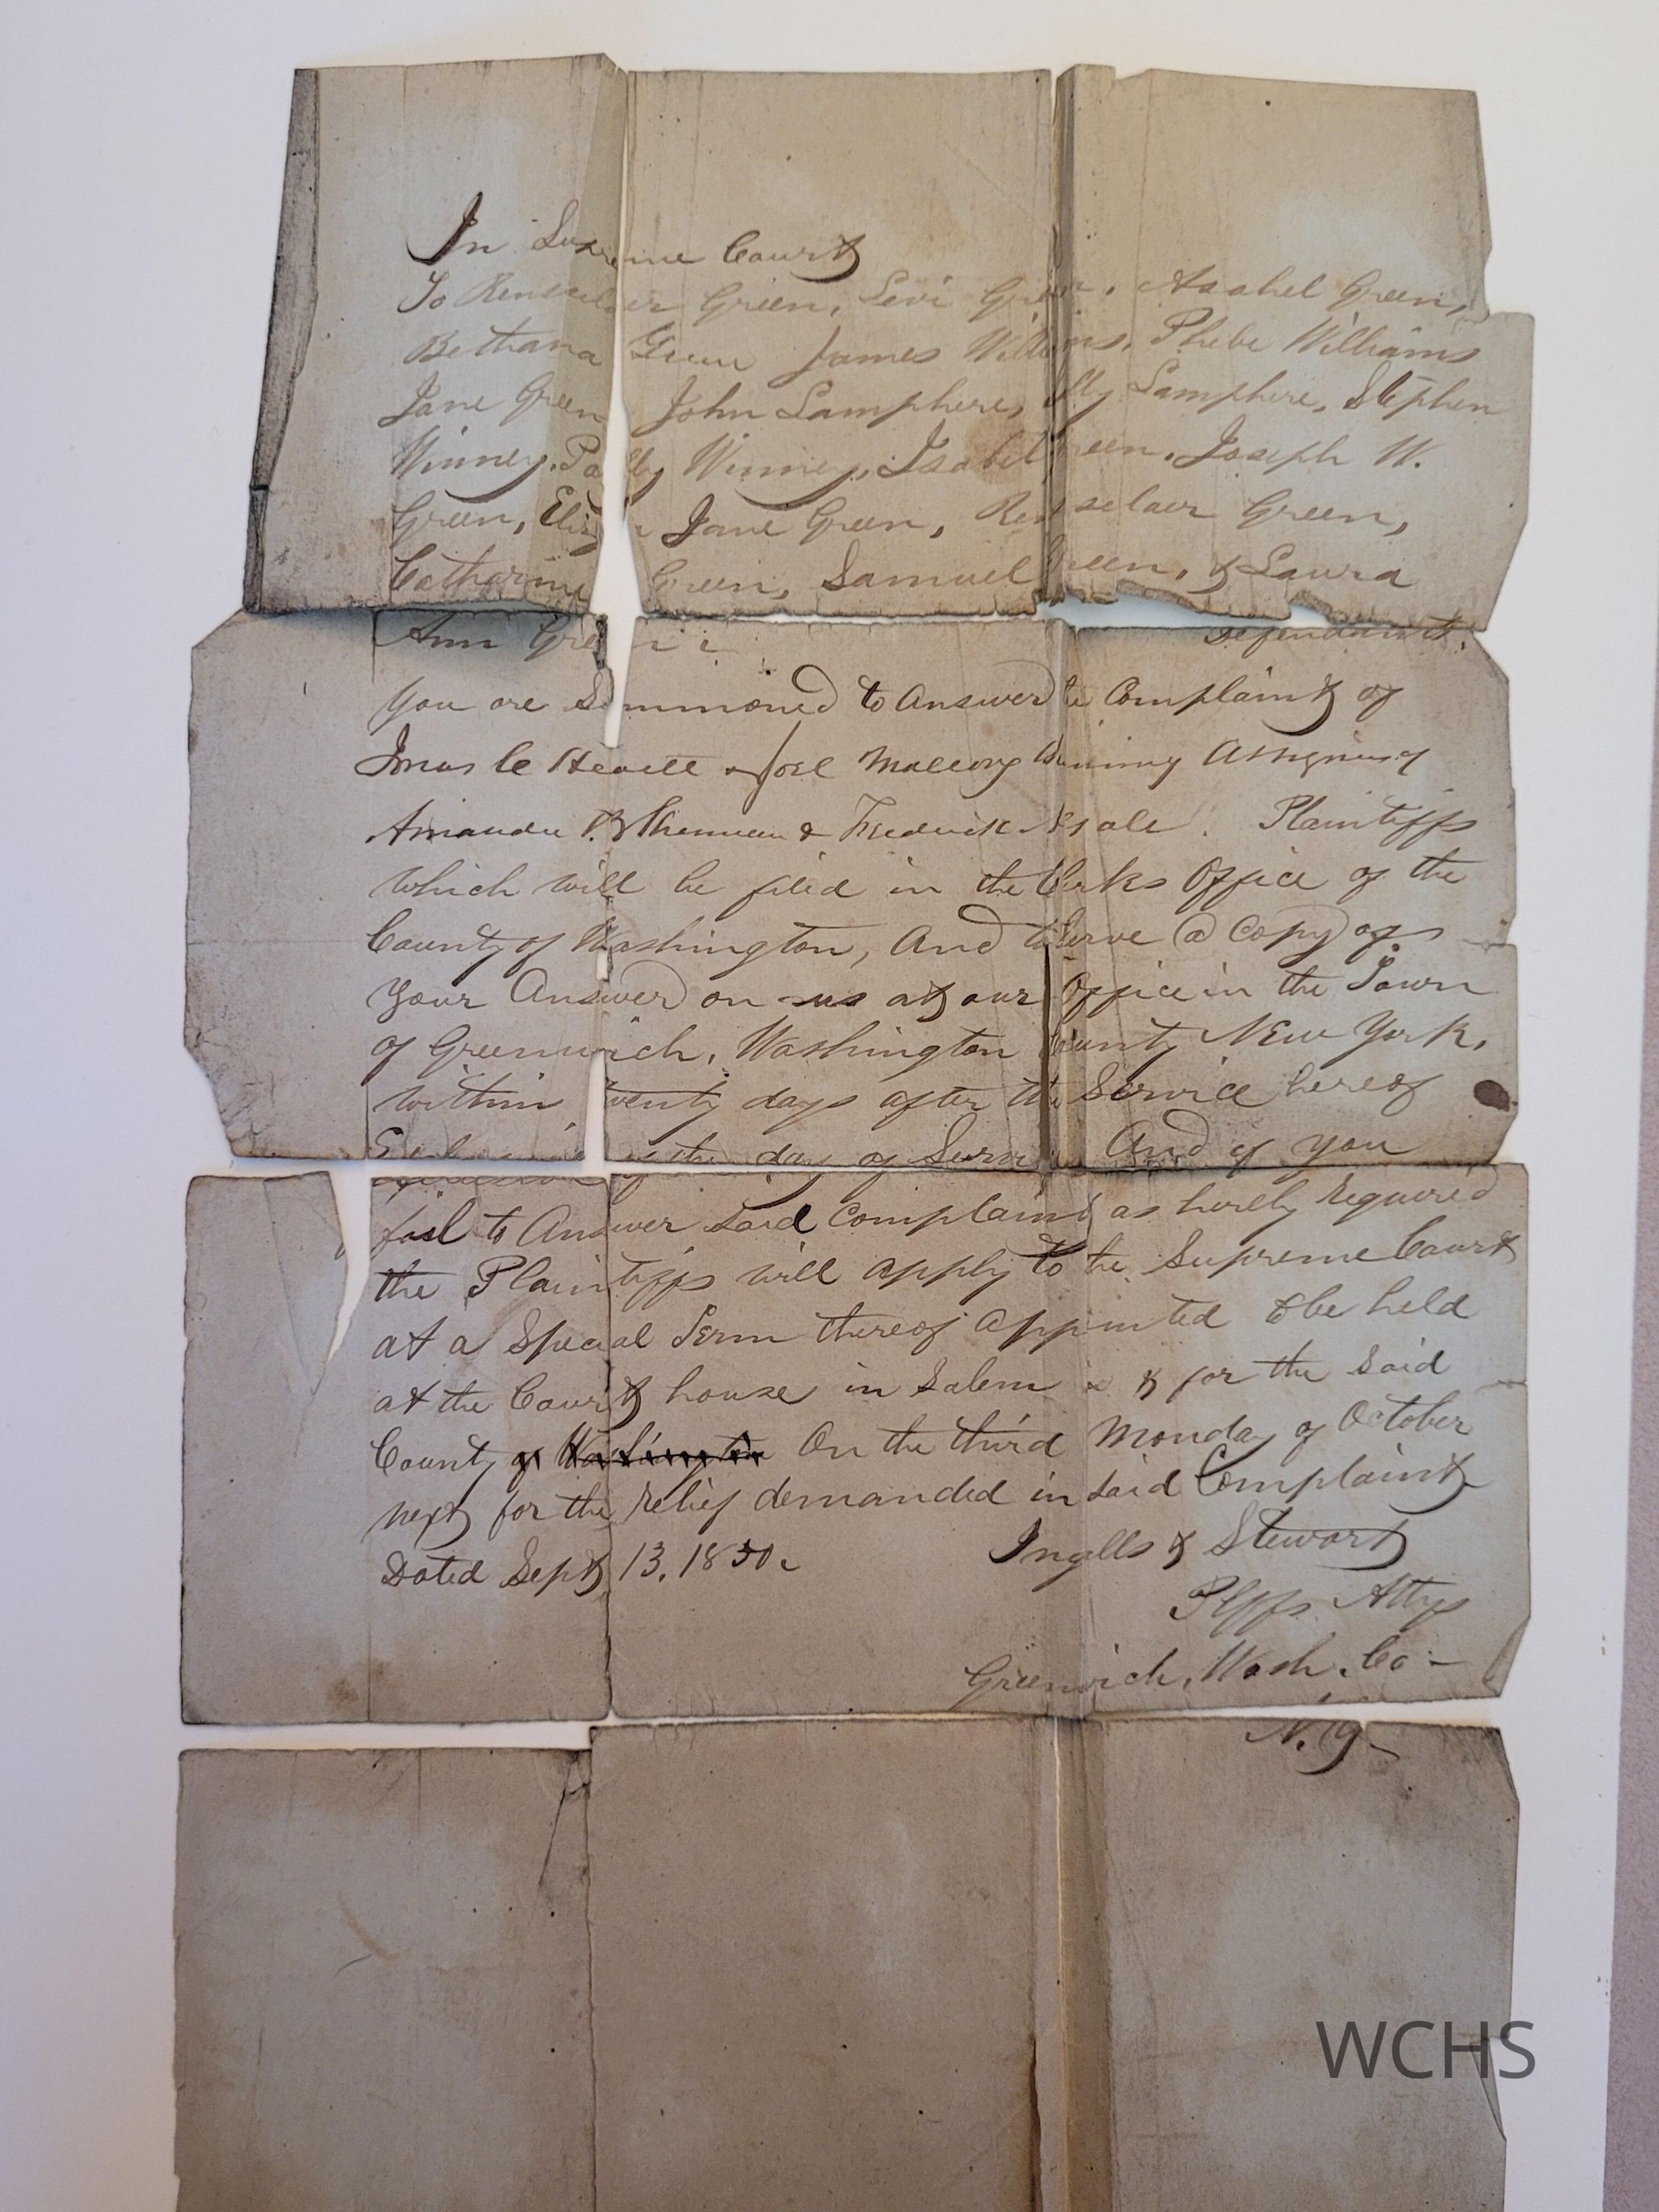 In Supreme Court
To Renselaer Green, Levi Green, Asahel Green,
Bethana Green James Williams, Phebe Williams
Jane Green John Lamphere, Lamphere, Stephen
Winney, Polly Winney, Isabel Green, Joseph W.
Green, Eliza Jane Green, Renselaer Green,
Catharine Green, Samuel Green, & Laura
Ann Green Defendants.
You are Summoned to answer the Complaint of
Hewett & Joel Mallory Assignees of
Amanda B. Sherman & Frederick Plaintiffs
which will be filed in the Clerks Office of the
County of Washington, And to Serve a Copy of
Your Answer on us at our Office in the Town
of Greenwich, Washington County New York,
within twenty days after the Service hereof
Exclusive of the day of Service And if you
fail to Answer Said Complaint as hereby required
the Plaintiffs will apply to the Supreme Court
at a Special Term thereof appointed to be held
at the Court house in Salem in & for the Said
County of Washington On the third Monday of October
next for the relief demanded in Said Complaint
Dated Sept 13. 1850. Ingalls & Stewart
Plffs Attys
Greenwich, Wash. Co -
N. Y -
WCHS